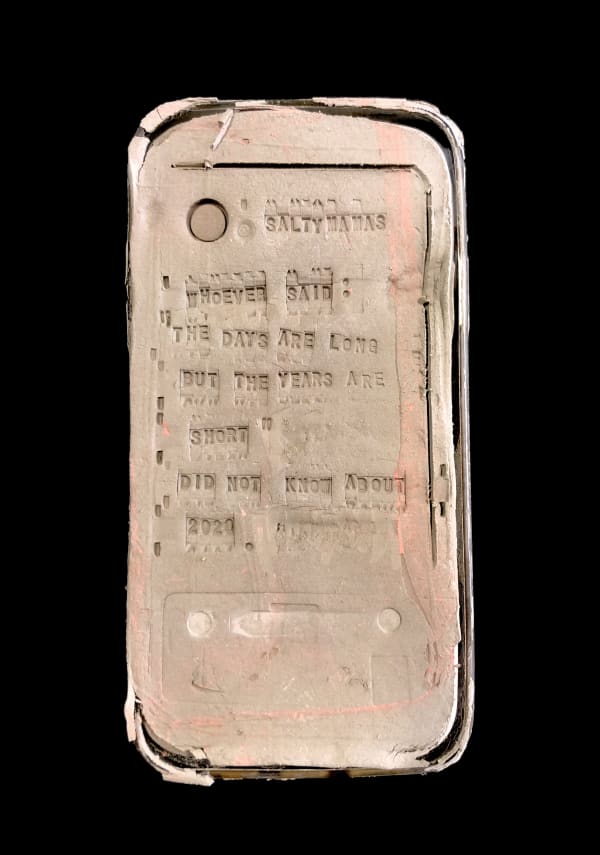 SALTY MAMAS
WHOEVER SAID:
"THE DAYS ARE LONG
BUT THE YEARS ARE
SHORT"
DID NOT KNOW ABOUT
2020.